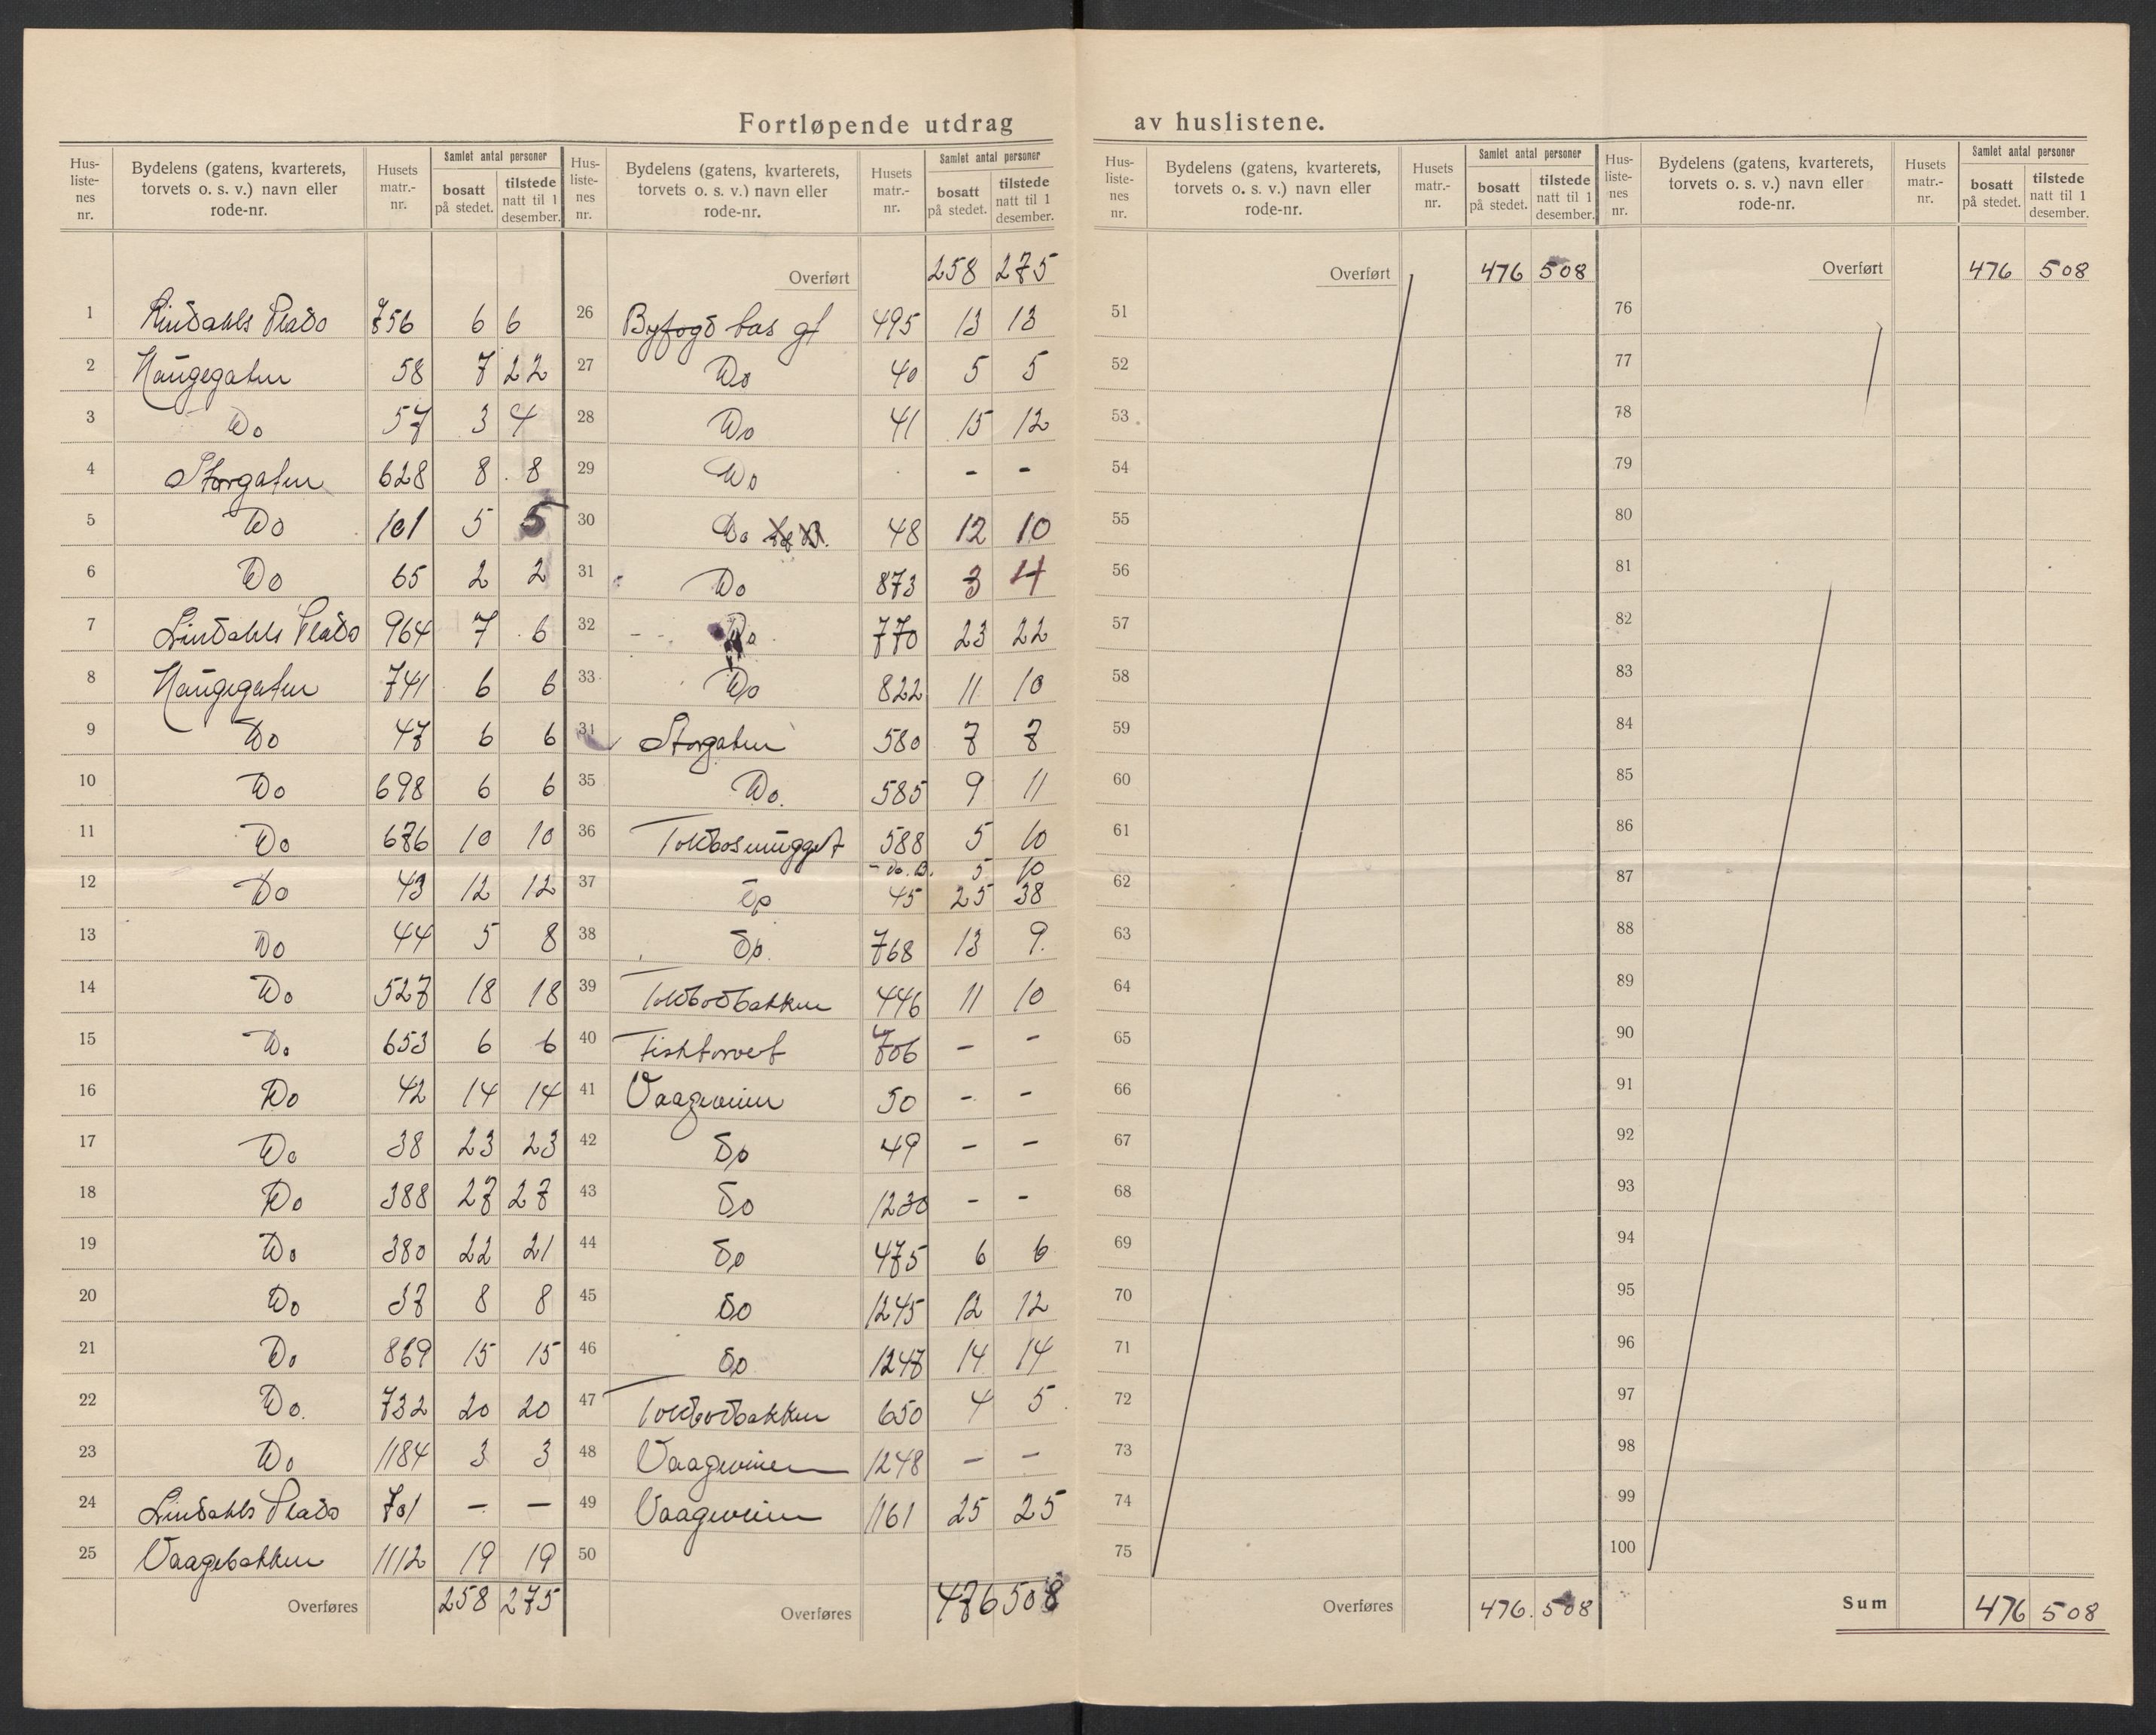 Fortløpende utdrag av huslistene.
Hus-liste-nes nr. Bydelens (gatens, kvarterets, torvets o. s. v.) navn eller rode-nr. Husets matr.-nr. Samlet antal personer bosatt på stedet. tilstede natt til 1 desember.
Hus-liste-nes nr. Bydelens (gatens, kvarterets, torvets o. s. v.) navn eller rode-nr. Husets matr.-nr. Samlet antal personer bosatt på stedet. tilstede natt til 1 desember.
Hus-liste-nes nr. Bydelens (gatens, kvarterets, torvets o. s. v.) navn eller rode-nr. Husets matr.-nr. Samlet antal personer bosatt på stedet. tilstede natt til 1 desember.
Hus-liste-nes nr. Bydelens (gatens, kvarterets, torvets o. s. v.) navn eller rode-nr. Husets matr.-nr. Samlet antal personer bosatt på stedet. tilstede natt til 1 desember.
1 Lindahls Plads 756 6 6
2 Haugegaten 58 7 22
3 Do 57 3 4
4 Storgaten 628 8 8
5 Do 101 5 5
6 Do 65 2 2
7 Lindahls Plads 964 7 6
8 Haugegaten 741 6 6
9 Do 47 6 6
10 Do 698 6 6
11 Do 676 10 10
12 Do 43 12 12
13 Do 44 5 8
14 Do 527 18 18
15 Do 653 6 6
16 Do 42 14 14
17 Do 38 23 23
18 Do 388 27 27
19 Do 380 22 21
20 Do 37 8 8
21 Do 869 15 15
22 Do. 732 20 20
23 Do 1184 3 3
24 Lindahls Plads 701 - -
25 Vaagebakken 1112 19 19
Overføres 258 275
Overført 258 275
26 Byfogd gt 495 13 13
27 Do 40 5 5
28 Do 41 15 12
29 Do - -
30 Do 48 12 10
31 Do 873 3 4
32 Do 770 23 22
33 Do 822 11 10
34 Storgaten 580 7 7
35 Do. 585 9 11
36 Toldbodsmugget 588 5 10
- Do. B. 5 10
37 Do 45 25 38
38 Do. 768 13 9.
39 Toldbodbakken 446 11 10
40 Fisktorvet 706 - -
41 Vaageveien 50 - -
42 Do 49 - -
43 Do 1230 - -
44 Do 475 6 6
45 Do 1245 12 12
46 Do 1247 14 14
47 Toldbodbakken 650 4 5
48 Vaageveien 1248 - -
49 Vaageveien 1161 25 25
50
Overføres 476 508
Overført 476 508
51
52
53
54
55
56
57
58
59
60
61
62
63
64
65
66
67
68
69
70
71
72
73
74
75
Overføres 476. 508
Overført 476 508
76
77
78
79
80
81
82
83
84
85
86
87
88
89
90
91
92
93
94
95
96
97
98
99
100
Sum 476 508